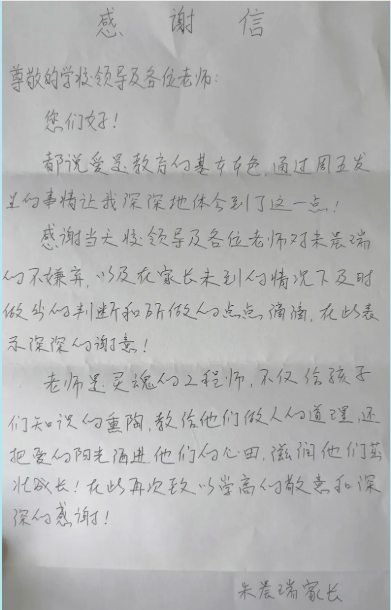 感谢信
尊敬的学校领导及各位老师：
您们好！
都说爱是教育的基本本色，通过周五发
生的事情让我深深地体会到了这一点！
感谢当天校领导及各位老师对朱晨瑞
的不嫌弃，以及在家长未到的情况下及时
做出的判断和所做的点点滴滴，在此表
示深深的谢意！
老师是灵魂的工程师，不仅给孩子
们知识的熏陶，教给他们做人的道理，还
把爱的阳光洒进他们的心田，滋润他们茁
壮成长！在此再次致以崇高的敬意和深
深的感谢！
朱晨瑞家长